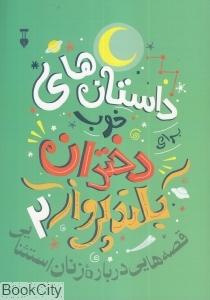 داستان های
خوب
برای
دختران
بلندپرواز ۲
قصه‌هایی درباره‌ٔ زنان استثنایی
BookCity